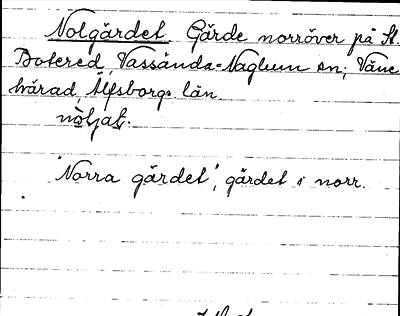 Nolgärdet. Gärde norröver på St.
Botered, Vassända-Naglum sn; Väne
härad, Älfsborgs län.
'Norra gärdet', gärdet i norr.